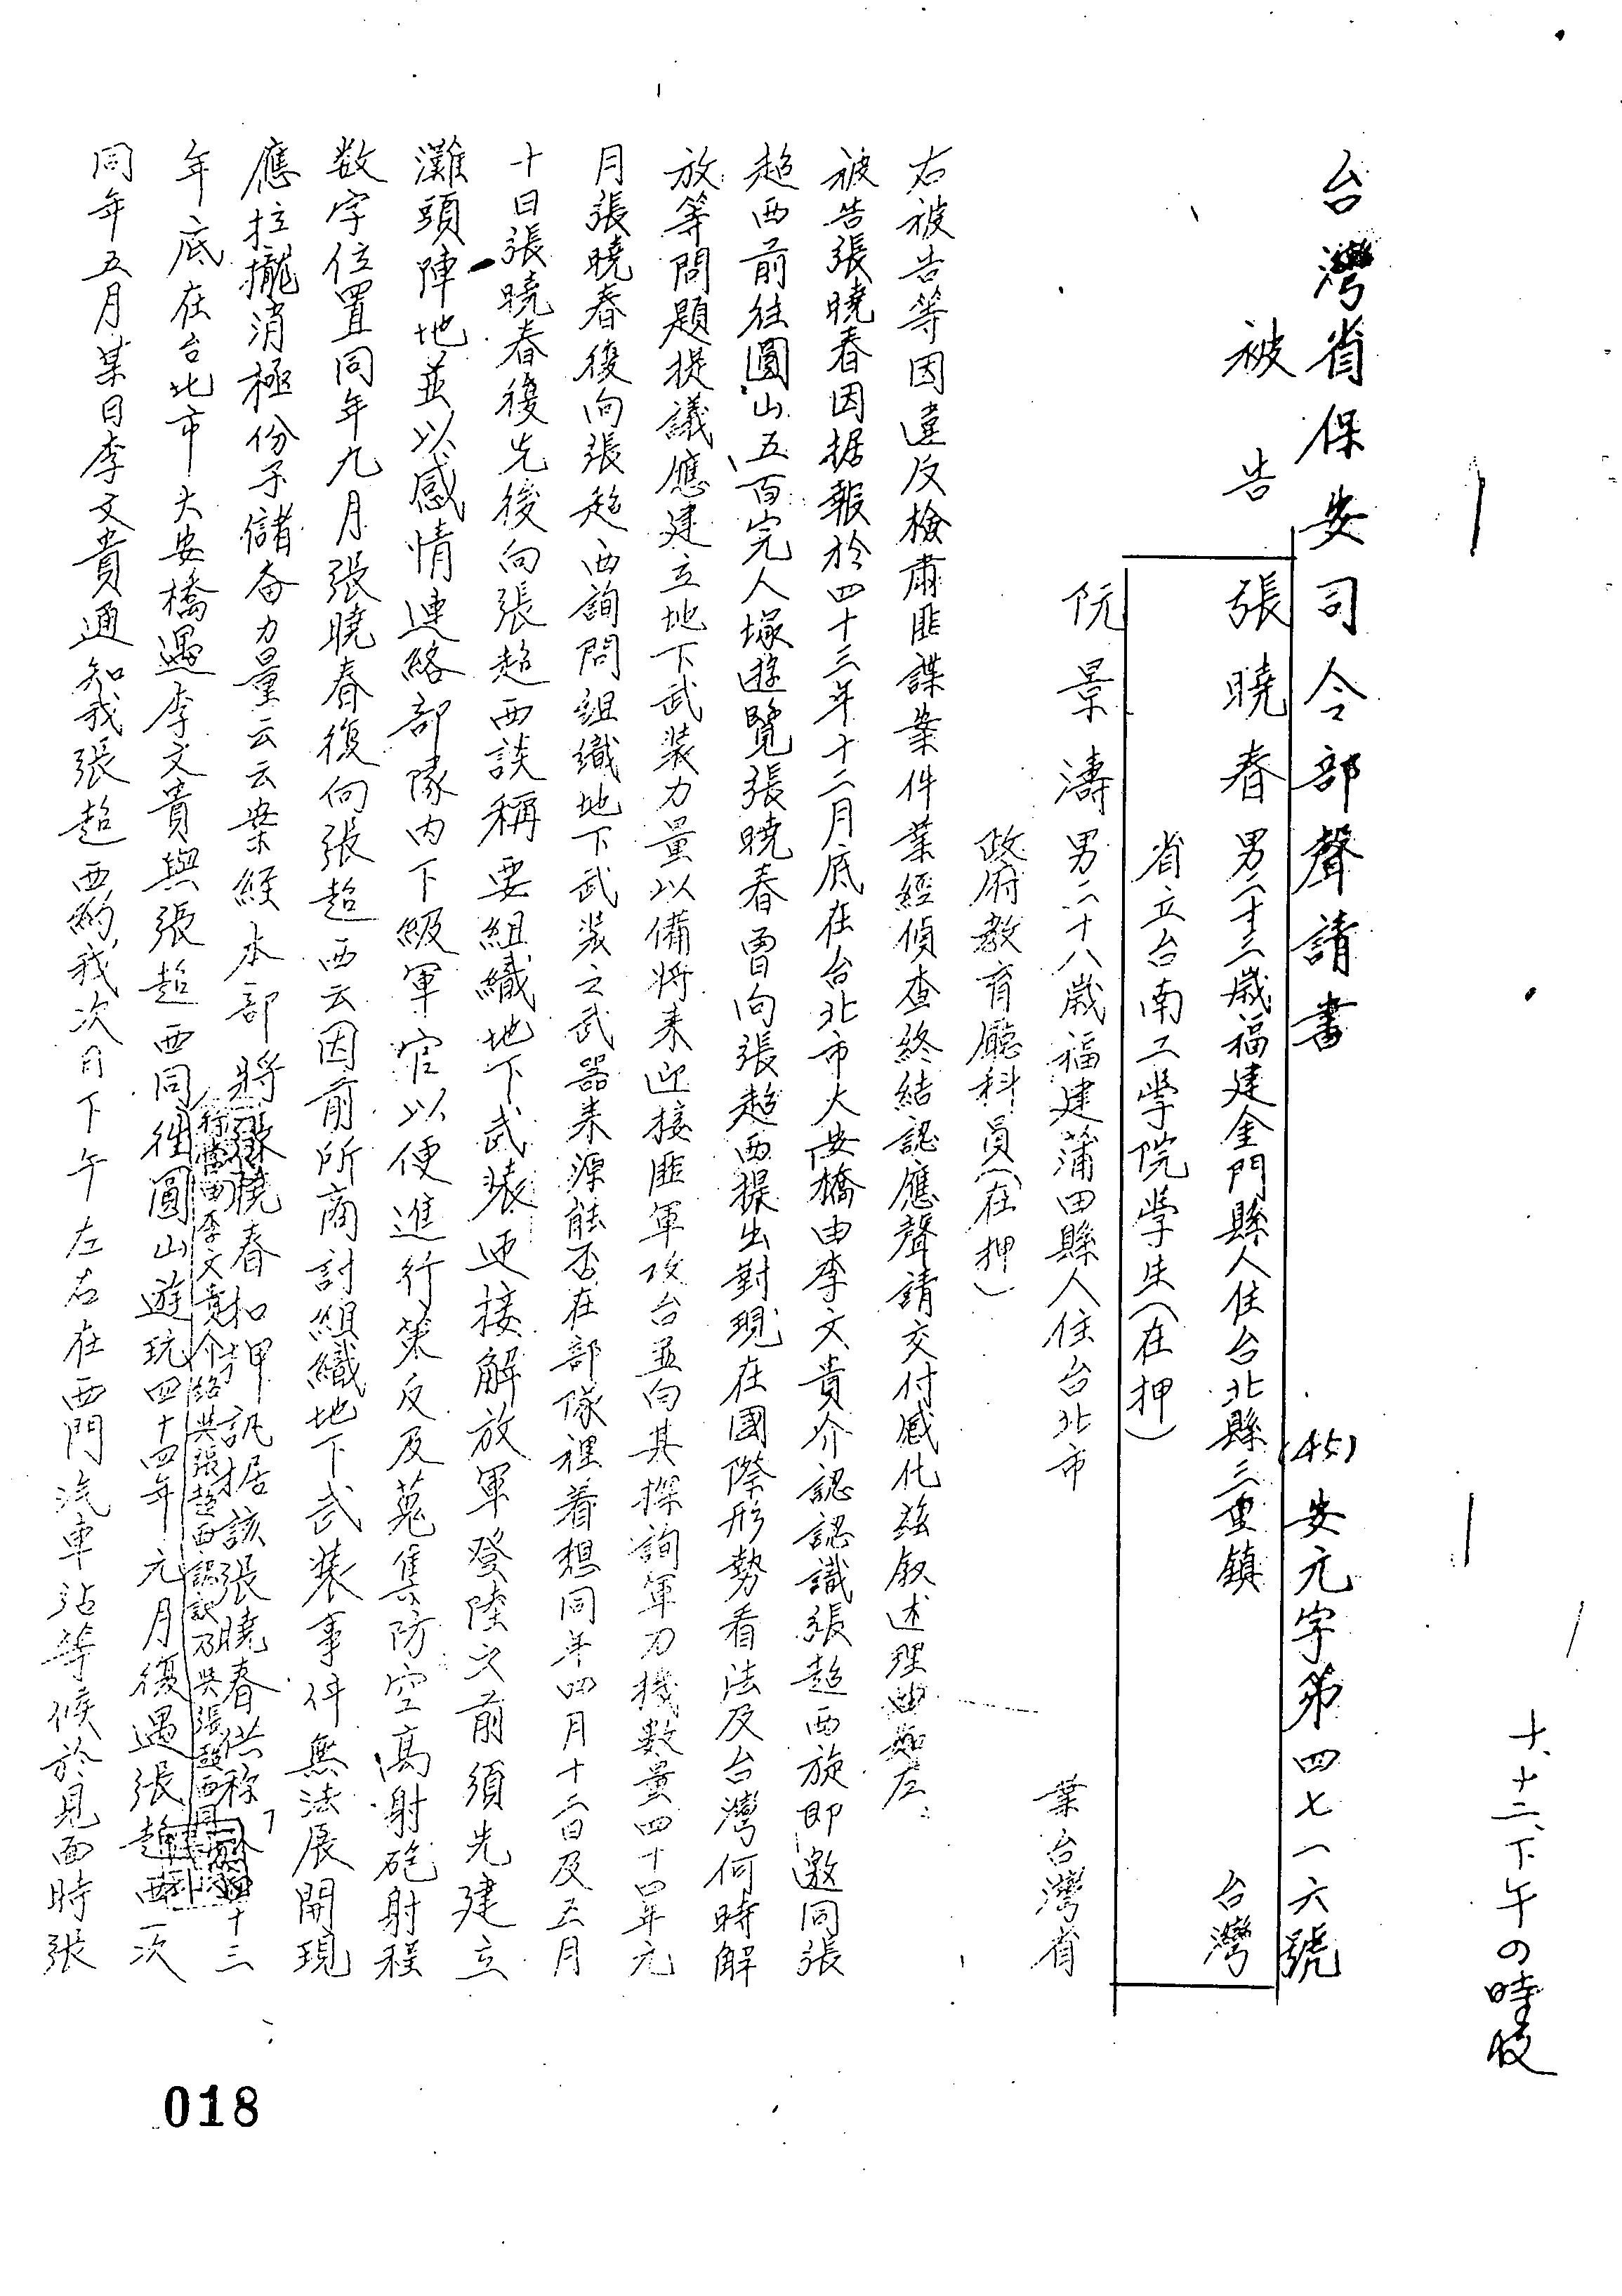 十、十二、下午の時收
台灣省保安司令部聲請書 (45)安元字第四七一六號
被告 張曉春 男二十三歲福建金門縣人住台北縣三重鎮 台灣
省立台南工學院學生(在押)
阮景濤 男二十八歲福建蒲田縣人住台北市 業台灣省
政府教育廳科員(在押)
右被告等因違反檢肅匪諜案件業經偵查終結認應聲請交付感化茲敘述理由如左:
被告張曉春因据報於四十三年十二月底在台北市大安橋由李文貴介認認識張超西旋即邀同張
超西前往圓山五百完人塚遊覽張曉春曾向張超西提出對現在國際形勢看法及台灣何時解
放等問題提議應建立地下武裝力量以備將来迎接匪軍攻台並向其探詢軍刀機數量四十四年元
月張曉春復向張超西詢問組織地下武裝之武器来源能否在部隊裡着想同年四月十二日及五月
十日張曉春復先後向張超西談稱要組織地下武裝迎接解放軍登陸之前須先建立
灘頭陣地並以感情連絡部隊内下級軍官以便進行策反及蒐集防空高射砲射程
数字位置同年九月張曉春復向張超西云因前所商討組織地下武裝事件無法展開現
應拉攏消極份子儲奋力量云云案經本部將張曉春扣押訊据該張曉春供称「四十三
年底在台北市大安橋遇李文貴與張超西同往圓山遊玩四十四年元月復遇張超西一次
同年五月某日李文貴通知我張超西約我次日下午左右在西門汽車站等候於見面時張
018